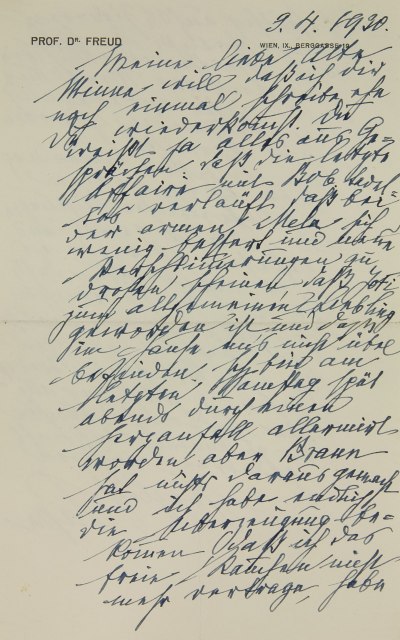 9.4.1930.
PROF. DR. FREUD WIEN, IX., BERGGASSE 19
Meine liebe Alte
Minna will daß ich dir
noch einmal schreibe ehe
du wiederkommst. Du
weißt ja alles aus Ge-
sprächen, daß die letzte
Affaire mit Bob tadel-
los verläuft, daß bei
der armen Mela sich
wenig bessert und neue
Verschlimmerungen zu
drohen scheinen, daß Jofi
zum allgemeinen Liebling
geworden ist und daß
im Hause uns nicht übel
befinden. Ich bin am
letzten Samstag spät
abends durch einen
Herzanfall allarmirt
worden aber Braun
hat nichts daraus gemacht
und ich habe endlich
die Überzeugung be-
komen daß ich das
freie Rauchen nicht
mehr vertrage, habe